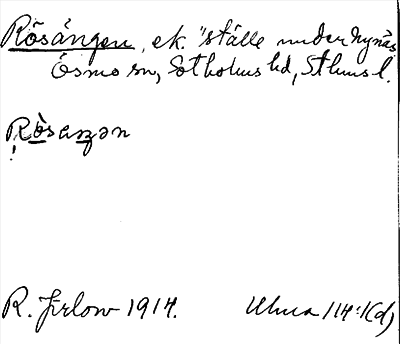 Rösängen, ek. "ställe under Nynäs,
Ösmo sn, Sotholms hd, Sthms l.
Rösaŋən
R. Jirlow 1914.
Ulma 114:1(d)